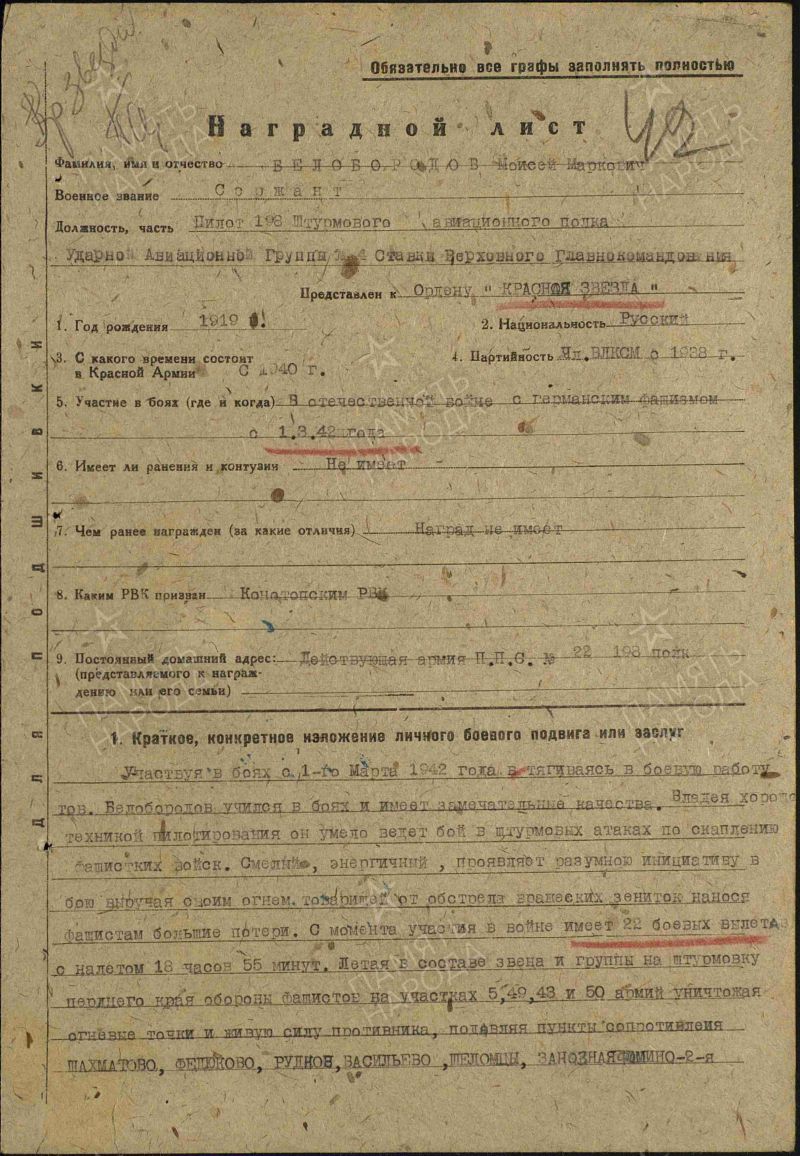 Кр звезда
Обязательно все графы заполнять полностью
Наградной лист
42
Фамилия, имя и отчество БЕЛОБОРОДОВ Моисей Маркович
Военное звание Сержант
Должность, часть Пилот 198 Штурмового авиационного полка
Ударной Авиационной Группы Ставки Верховного Главнокомандования
Представлен к Ордену "КРАСНАЯ ЗВЕЗДА"
1. Год рождения 1919 г. 2. Национальность Русский
3. С какого времени состоит в Красной Армии С 1940 г. 4. Партийность Чл.ВЛКСМ с 1938 г.
5. Участие в боях (где и когда) В отечественной войне с германским фашизмом
с 1.3.42 года
6. Имеет ли ранения и контузии Не имеет
7. Чем ранее награжден (за какие отличия) Наград не имеет
8. Каким РВК призван Конотопским РВК
9. Постоянный домашний адрес: Действующая армия П.П.С. № 22 198 полк
(представляемого к награж-
дению или его семьи)
Для подшивки
1. Краткое, конкретное изложение личного боевого подвига или заслуг
Участвуя в боях с 1-го Марта 1942 года втягиваясь в боевую работу
тов. Белобородов учился в боях и имеет замечательные качества. Владея хорошо
техникой пилотирования он умело ведет бой в штурмовых атаках по скаплению
фашистких войск. Смелый, энергичный, проявляет разумною инициативу в
бою выручая своим огнем товарищей от обстрела вражеских зениток нанося
фашистам большие потери. С момента участия в войне имеет 22 боевых вылетов
с налетом 18 часов 55 минут. Летая в составе звена и группы на штурмовку
переднего края обороны фашистов на участках 5,49,43 и 50 армий уничтожая
огневые точки и живую силу противника, подавляя пункты сопротивления
ШАХМАТОВО, ФЕДЮКОВО, РУДНОВ, ВАСИЛЬЕВО, ШЕЛОМЦЫ, ЗАНОЗНАЯ ФОМИНО-2-я
ПАМЯТЬ НАРОДА